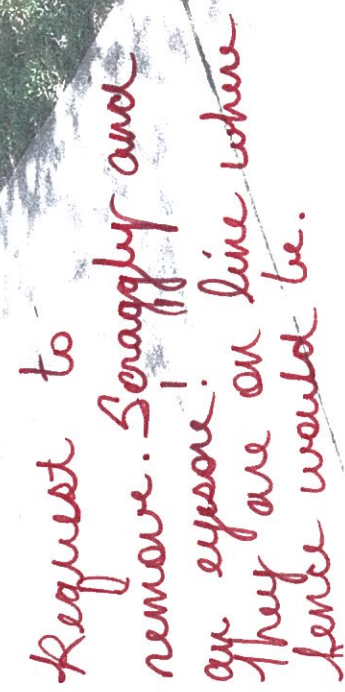 Request to
remove. Scraggly and
an eyesore!
They are on line where
fence would be.